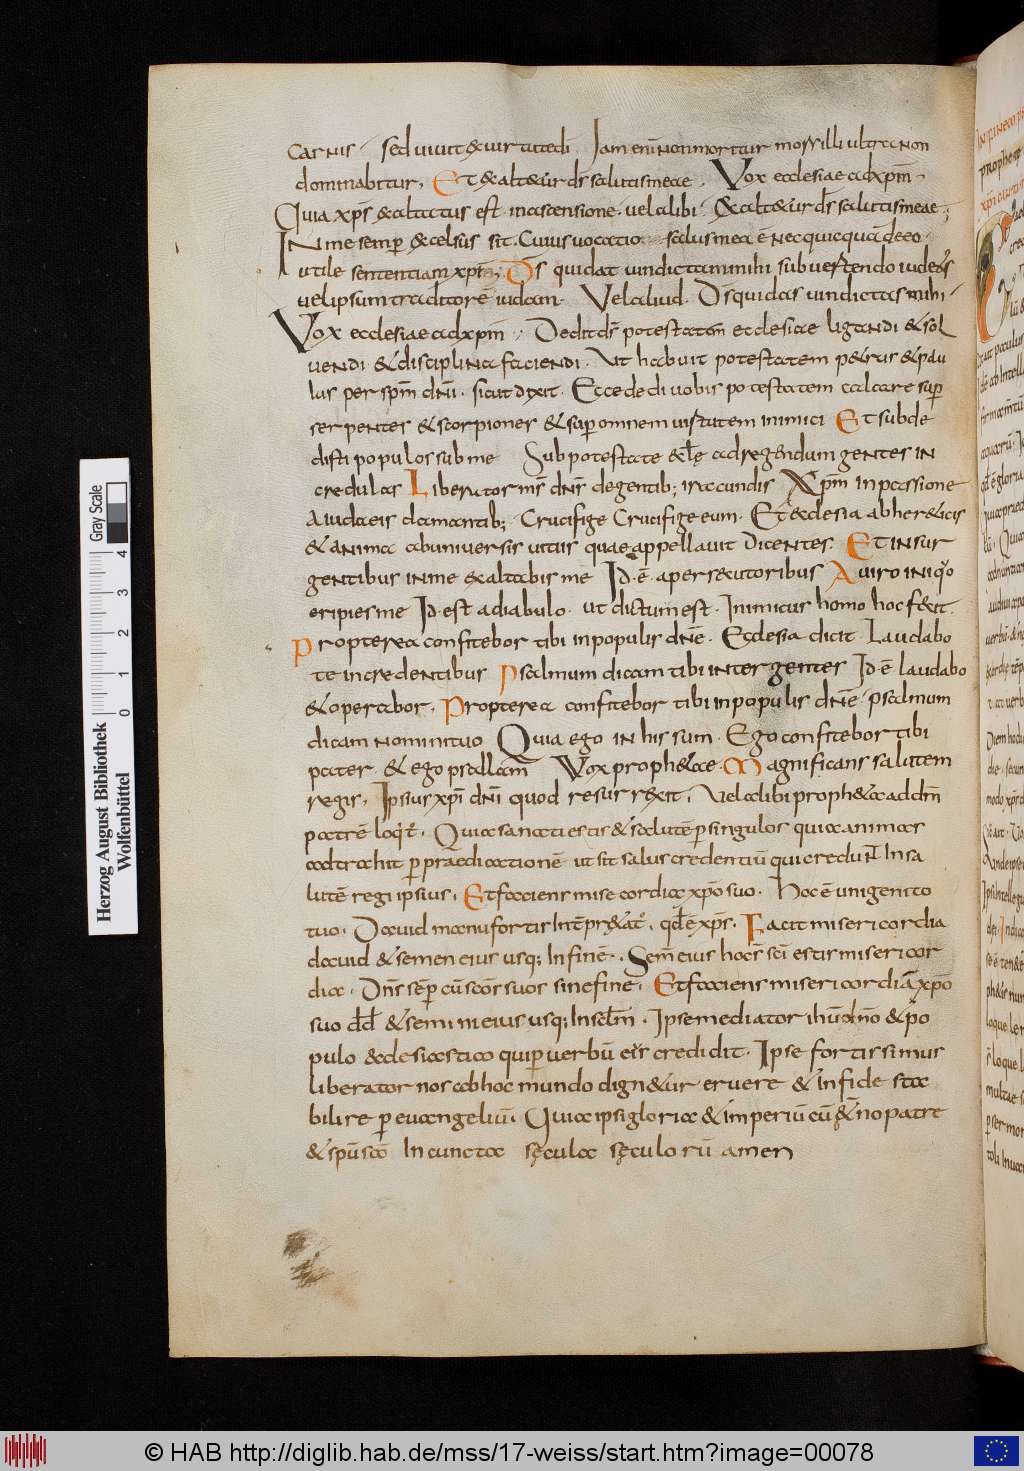 carnis sed uiuit & uirtute di Iam eni non moritur mors illi ultra non
dominabitur. Et exalt&ur ds salutis meae. Vox ecclesiae ad xpm
Quia xps exaltatus est in ascensione uel alibi Exalt&ur ds salutis meae;
In me semp excelsus sit. Cuius uocatio salus mea ē nec quicquā deeo
utile sententiam xpm; Ds qui dat uindictam mihi subuertendo iudęos
uel ipsum traditorē iudam. Vel aliud. Ds qui das uindictas mihi
Vox ecclesiae ad xpm. Dedit ds potestatem ecclesiae ligandi & sol
uendi & disciplina faciendi. Ut habuit potestatem p&rus & pau
lus per spm dnū. sicut dixit. Ecce dedi uobis potestatem calcare sup
serpentes & scorpiones & sup omnem uirtutem inimici Et subde
disti populos sub me Sub potestate
credulas Liberator ms dns de gentib; iracundis Xpm in passione
A iudaeis clamantib; Crucifige Crucifige eum. Et ecclesia ab her&icis
& anima ab uniuersis uitiis quae appellauit dicentes. Et insur
gentibus in me exaltabis me Id. ē a persecutoribus A uiro iniquo
eripies me Id. est a diabulo. ut dictum est. Inimicus homo hoc fecit.
Propterea confitebor tibi in populis dnē. Ecclesia dicit Laudabo
te in credentibus Psalmum dicam tibi inter gentes Id ē laudabo
& operabor. Propterea confitebor tibi in populis dnē psalmum
dicam nomini tuo Quia ego in his sum. Ego confitebor tibi
pater. & ego psallam Vox proph&ae. Magnificans salutem
regis. Ipsius xpi dni quod resurrexit. Vel alibi proph&a ad dm
patrē loqt. Quia sanati estis & salutē p singulos quia animas
adtrahit p praedicationē ut sit salus credentiū qui credunt In sa
lutē regi ipsius. Et faciens misecordia xpo suo. Hoc ē unigenito
tuo. Dauid manu fortis Intēpr&at, qd ē xps. Facit misericordia
dauid & semen eius usq; In finē. Semē eius hoc sci estis misericor
dia. Dns sēp cū scos suos sine fine. Et faciens misericordiā xpo
suo dd & semini eius usq; In sclm. Ipse mediator ihū dno & po
pulo ecclesiastico qui p uerbū eis credidit. Ipse fortissimus
liberator nos ab hoc mundo dign&ur eruere & in fide sta
bilire p euangeliū. Quia ipsi gloria & imperiū cū &no patre
& spū sco In cuncta sęcula sęculorū amen
Herzog August Bibliothek
Wolfenbüttel
0 1 2 3 4
Gray Scale
© HAB http://diglib.hab.de/mss/17-weiss/start.htm?image=00078